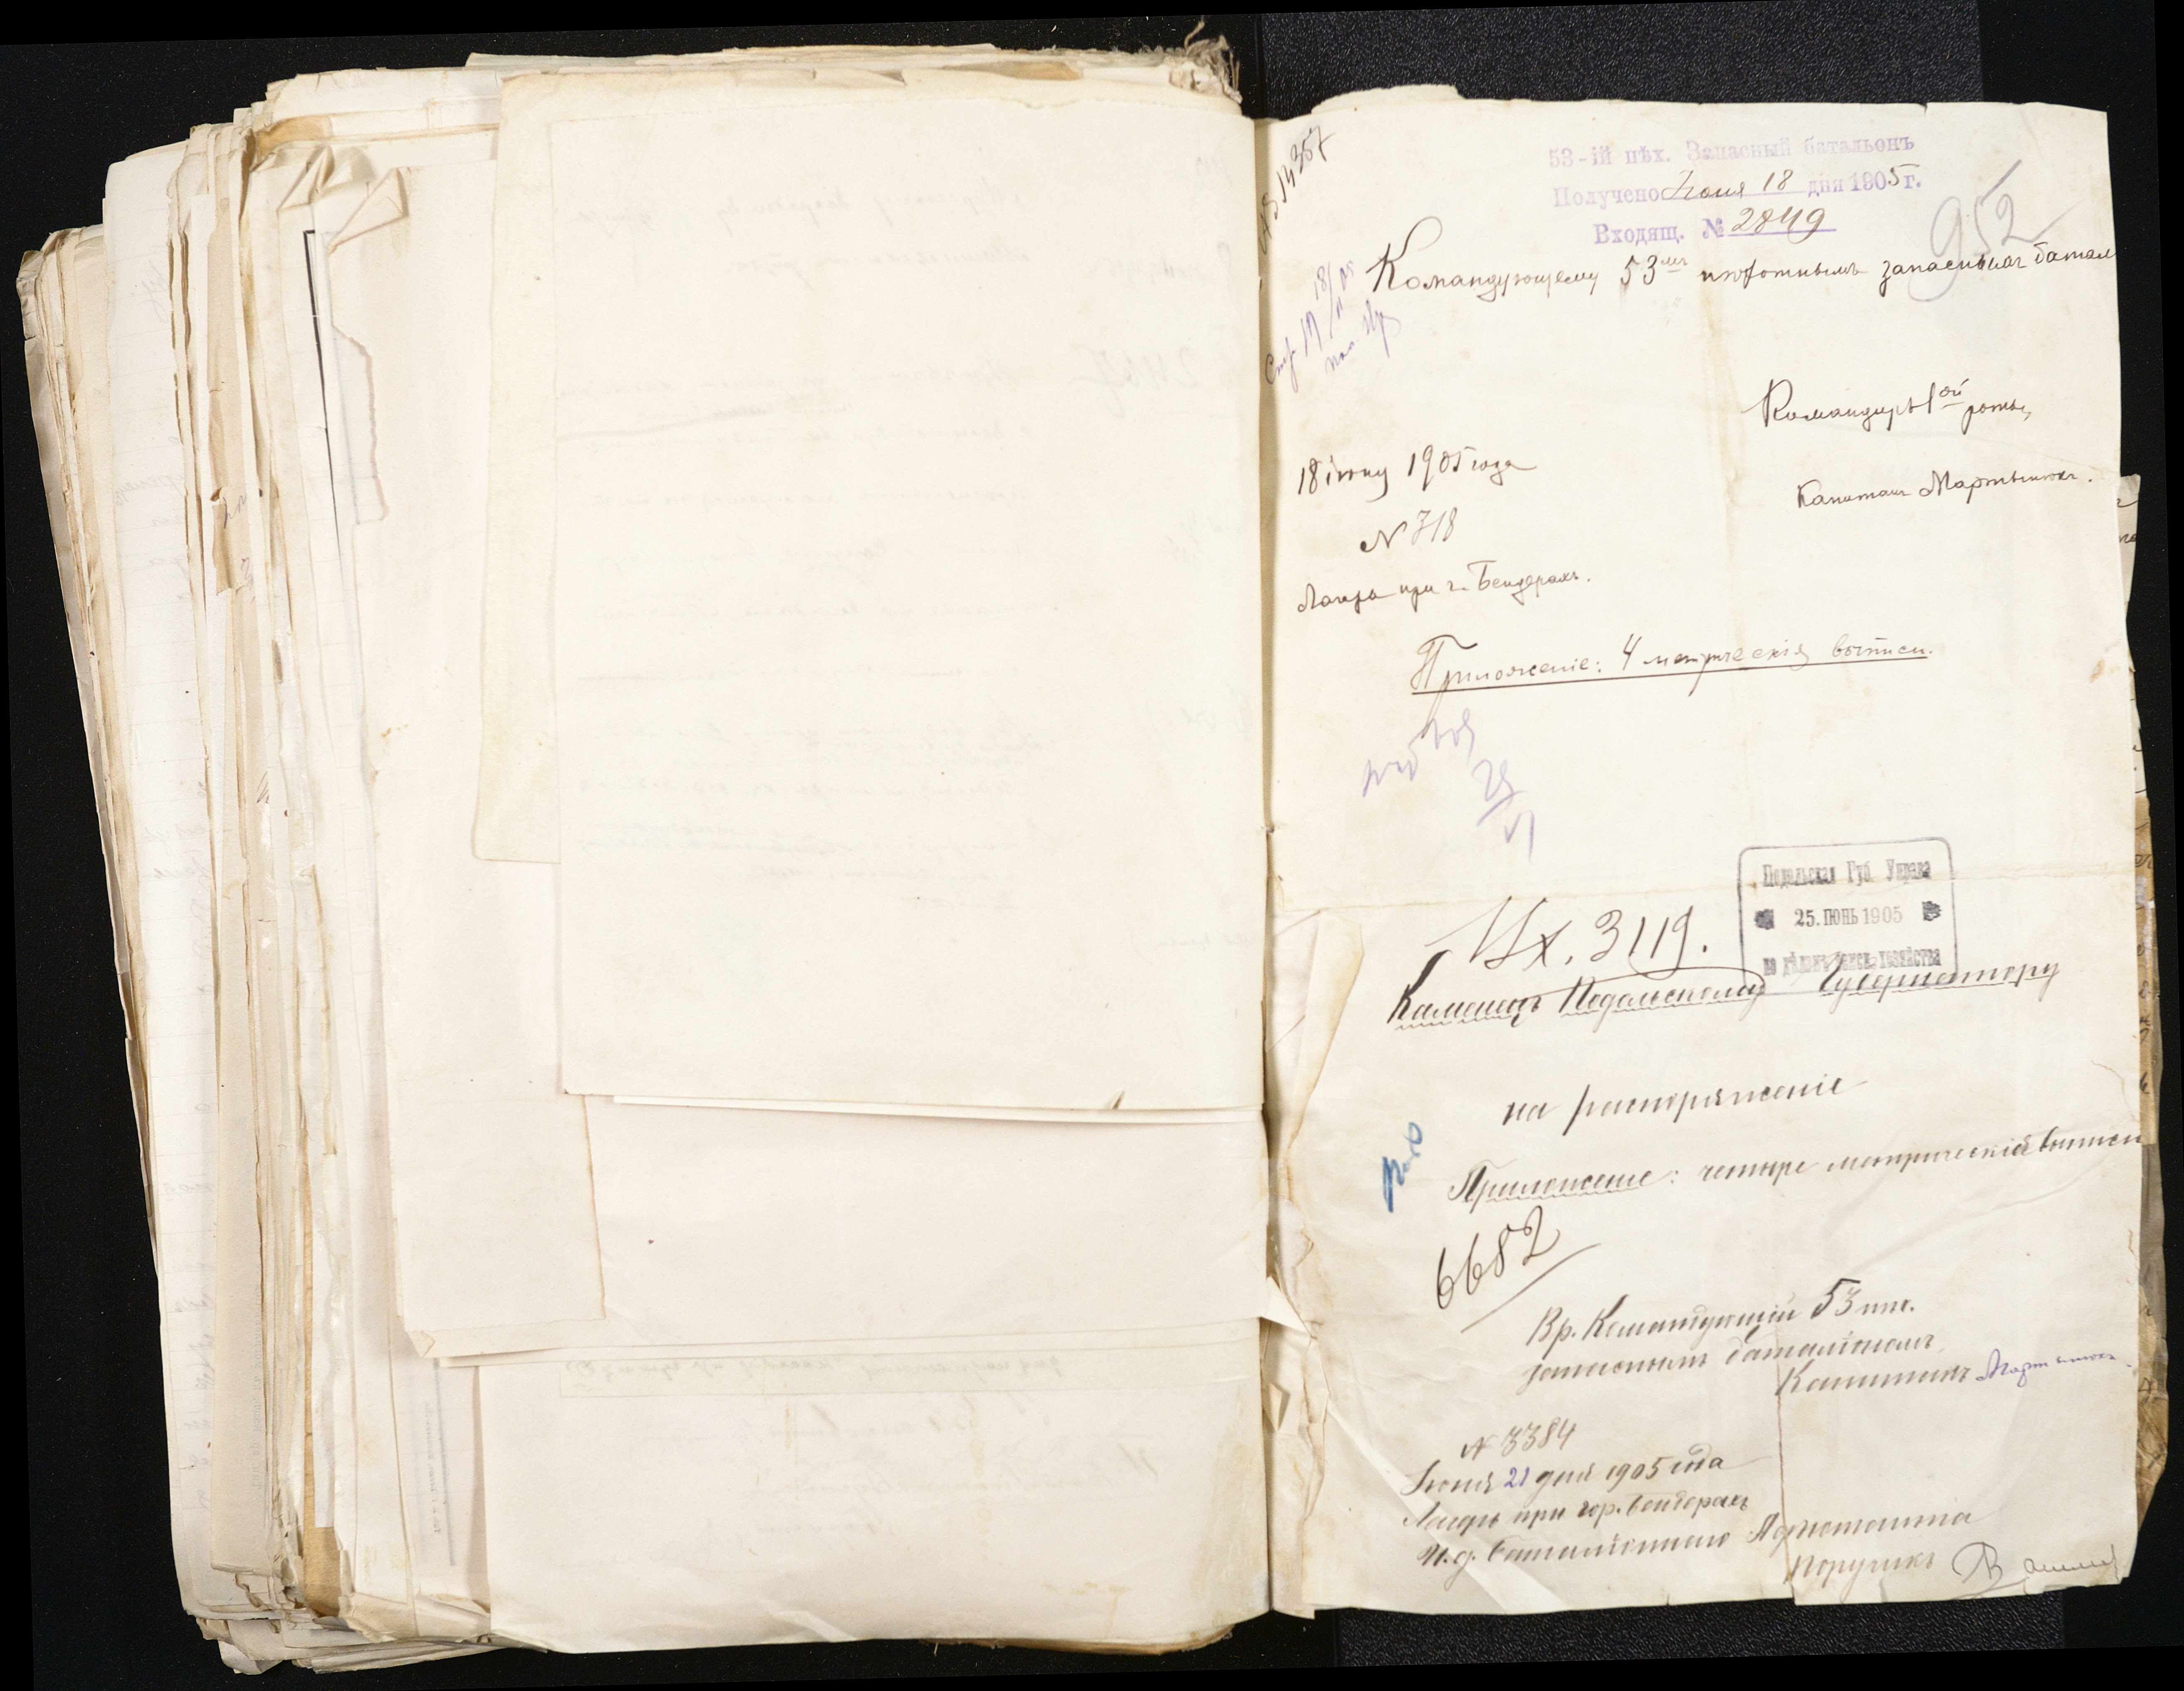 53-ій пѣх. Запасный батальонъ
Получено Іюня 18 дня 1905 г.
Входящ. № 2849
952
Командующему 53мъ пѣхотнымъ запаснымъ батал
Командиръ 1ой роты,
18 іюня 1905 года
Капитанъ Мартынюкъ.
N 718
Лагерь при г. Бендерахъ.
Приложеніе: 4 метрическія выписи.
Подольская Губ. Управа
25. ІЮНЬ 1905
по дѣламъ земск. хозяйства
Их. 3119.
Каменецъ Подольскому Губернатору
на распоряженіе
Приложеніе: четыре метрическія выписи
6682
Вр. Командующій 53 пѣх.
запаснымъ баталіономъ
Капитанъ Мартынюкъ.
N 3384
Іюня 21 дня 1905 года
Лагерь при гор. Бендерахъ
И. д. баталіоннаго Адъютанта
Поручикъ